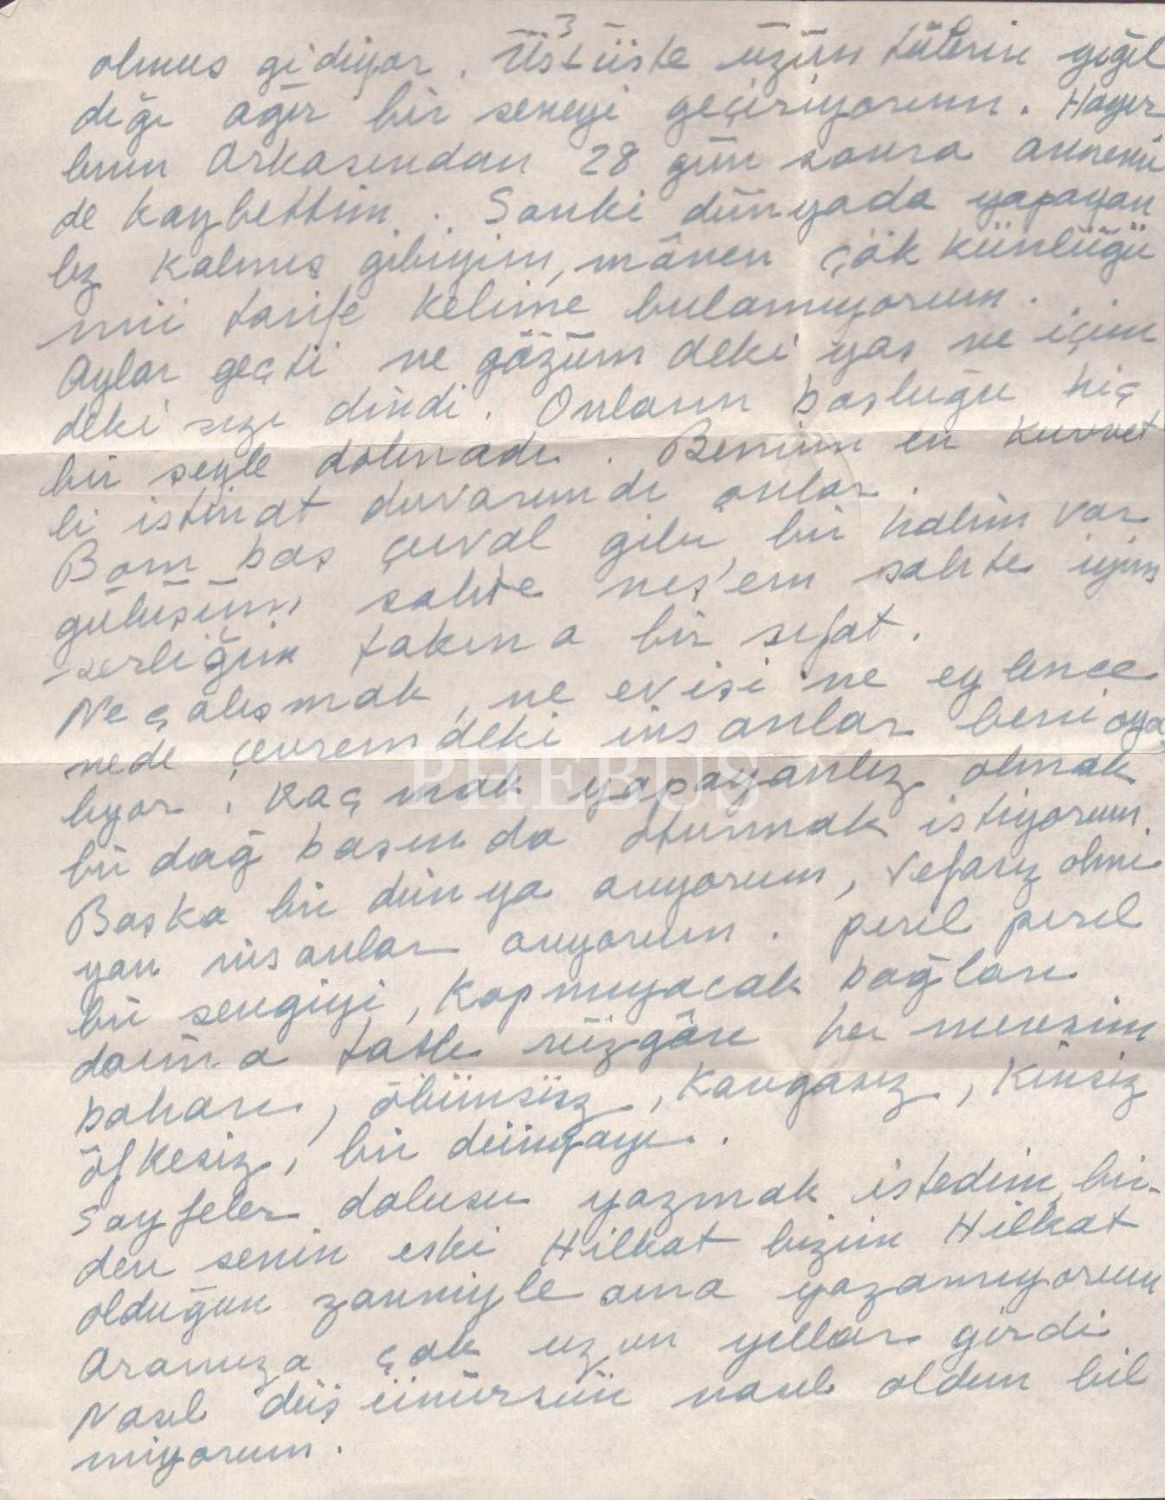 3
olmus gidiyor. Üstüste üzüntülerin yığıl
dığı ağır bir seneyi geçiriyorum. Hayır
bunun arkasından 28 gün sonra annemi
de kaybettim. Sanki dünyada yapayan
lız kalmıs gibiyim, mânen çök künlüğü
mü tarife kelime bulamıyorum.
Aylar geçti ne gözüm deki yaş ne içim
deki sızı dindi. Onların boşluğu hiç
bir seyle dolmadı. Benim en kuvvet
li istinat duvarımdı onlar.
Bom boş çuval gibi bir halim var
gülüsüm sahte neş'em sahte iyim
serliğim takma bir sıfat.
Ne çalışmak, ne ev işi ne eylence
nede çevremdeki insanlar beni oya
lıyor. Kaç mak yapayanlız olmak
bir dağ başında oturmak istiyorum.
Başka bir dünya arıyorum, vefasız olmı
yan insanlar arıyorum. pırıl pırıl
bir sevgiyi, kopmıyacak bağları
daima tatlı rüzgârı her mevsim
baharı, ölümsüz, kavgasız, kinsiz
öfkesiz, bir dünyayı.
Sayfeler dolusu yazmak istedim, bir-
den senin eski Hilkat bizim Hilkat
olduğun zanniyle ama yazamıyorum
Aramıza çok uzun yıllar girdi
Nasıl düşünürsün nasıl oldun bil
miyorum.
PHEBUS